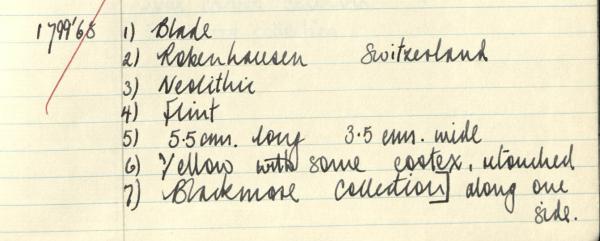 1799'68 1) Blade
2) Robenhausen Switzerland
3) Neolithic
4) Flint
5) 5.5 cms. long 3.5 cms. wide
6) Yellow with some cortex, retouched
7) Blackmore Collection] along one
side.